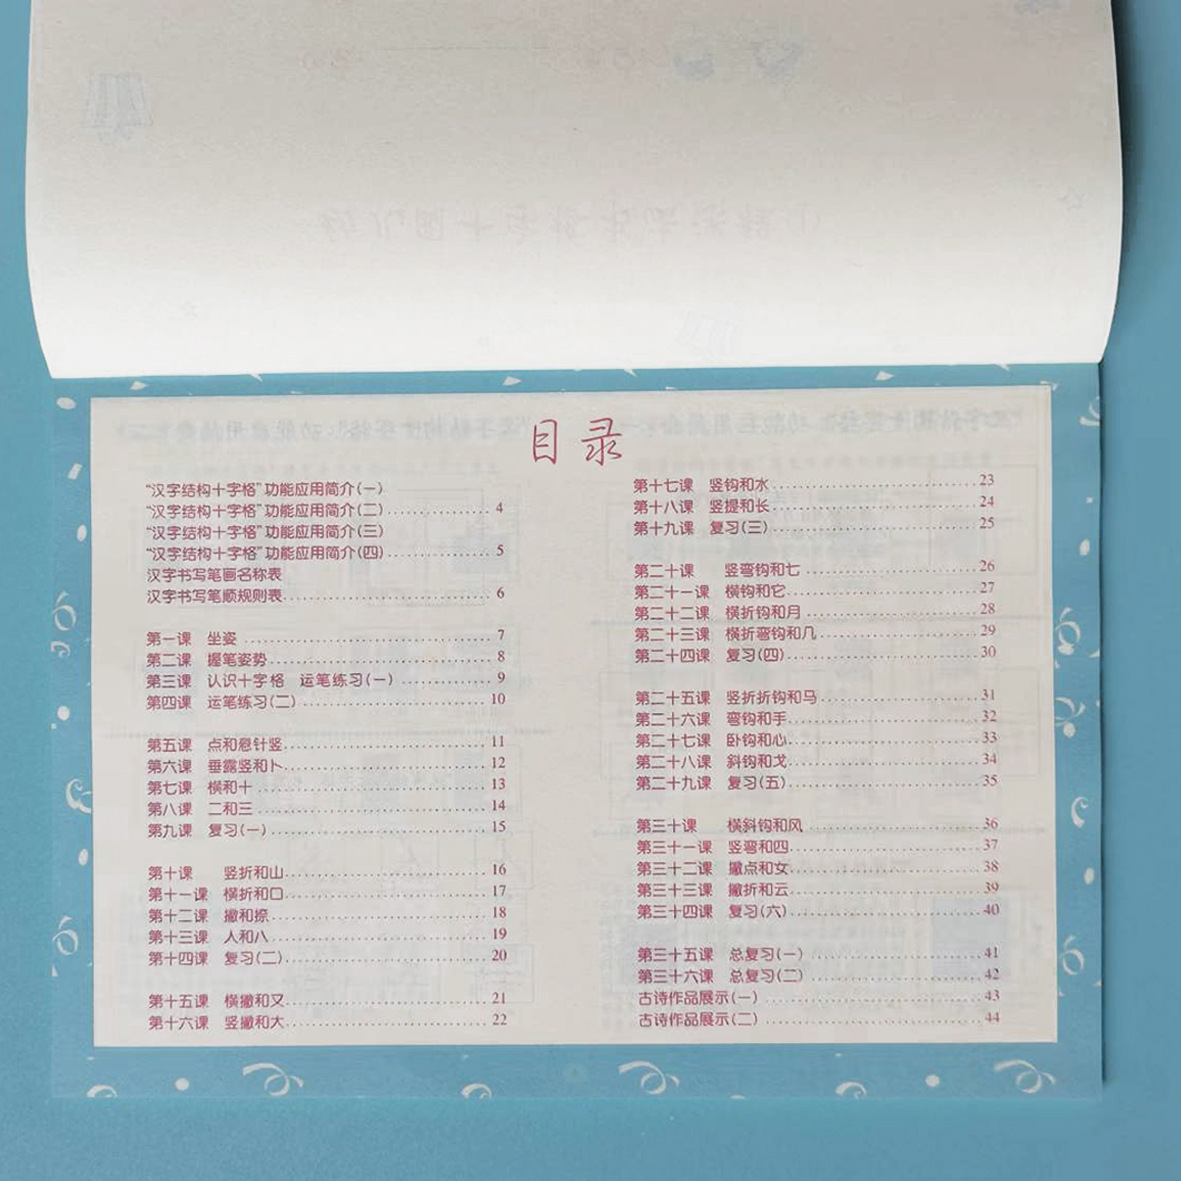 目录
“汉字结构十字格”功能应用简介(一)
“汉字结构十字格”功能应用简介(二) 4
“汉字结构十字格”功能应用简介(三)
“汉字结构十字格”功能应用简介(四) 5
汉字书写笔画名称表
汉字书写笔顺规则表 6
第一课 坐姿 7
第二课 握笔姿势 8
第三课 认识十字格 运笔练习(一) 9
第四课 运笔练习(二) 10
第五课 点和悬针竖 11
第六课 垂露竖和卜 12
第七课 横和十 13
第八课 二和三 14
第九课 复习(一) 15
第十课 竖折和山 16
第十一课 横折和口 17
第十二课 撇和捺 18
第十三课 人和八 19
第十四课 复习(二) 20
第十五课 横撇和又 21
第十六课 竖撇和大 22
第十七课 竖钩和水 23
第十八课 竖提和长 24
第十九课 复习(三) 25
第二十课 竖弯钩和七 26
第二十一课 横钩和它 27
第二十二课 横折钩和月 28
第二十三课 横折弯钩和几 29
第二十四课 复习(四) 30
第二十五课 竖折折钩和马 31
第二十六课 弯钩和手 32
第二十七课 卧钩和心 33
第二十八课 斜钩和戈 34
第二十九课 复习(五) 35
第三十课 横斜钩和风 36
第三十一课 竖弯和四 37
第三十二课 撇点和女 38
第三十三课 撇折和云 39
第三十四课 复习(六) 40
第三十五课 总复习(一) 41
第三十六课 总复习(二) 42
古诗作品展示(一) 43
古诗作品展示(二) 44